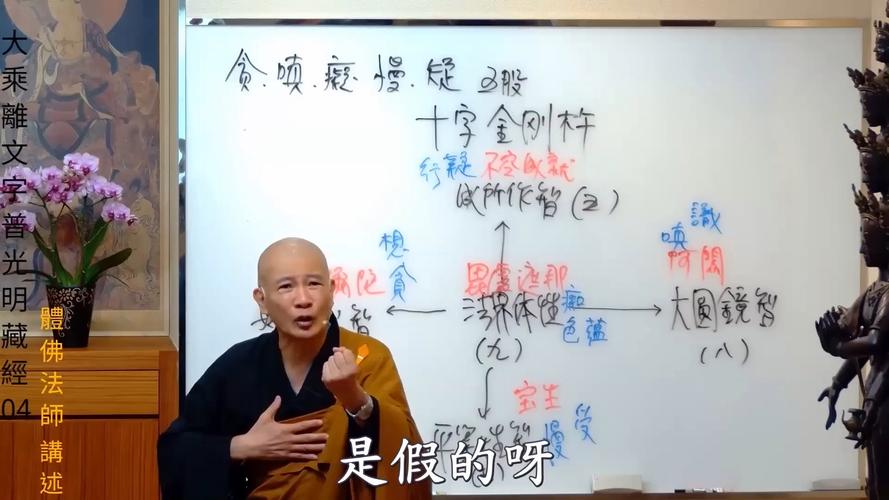 大乘離文字普光明藏經04
體佛法師 講述
貪.嗔.癡.慢.疑 五股
十字金刚杵
行疑 不空成就
成所作智(五)
想貪
彌陀
智
毘盧遮那
法界体性
(九)
癡
色蘊
識
嗔
阿閦
大圓鏡智
(八)
宝生
平等性智
慢受
是假的呀